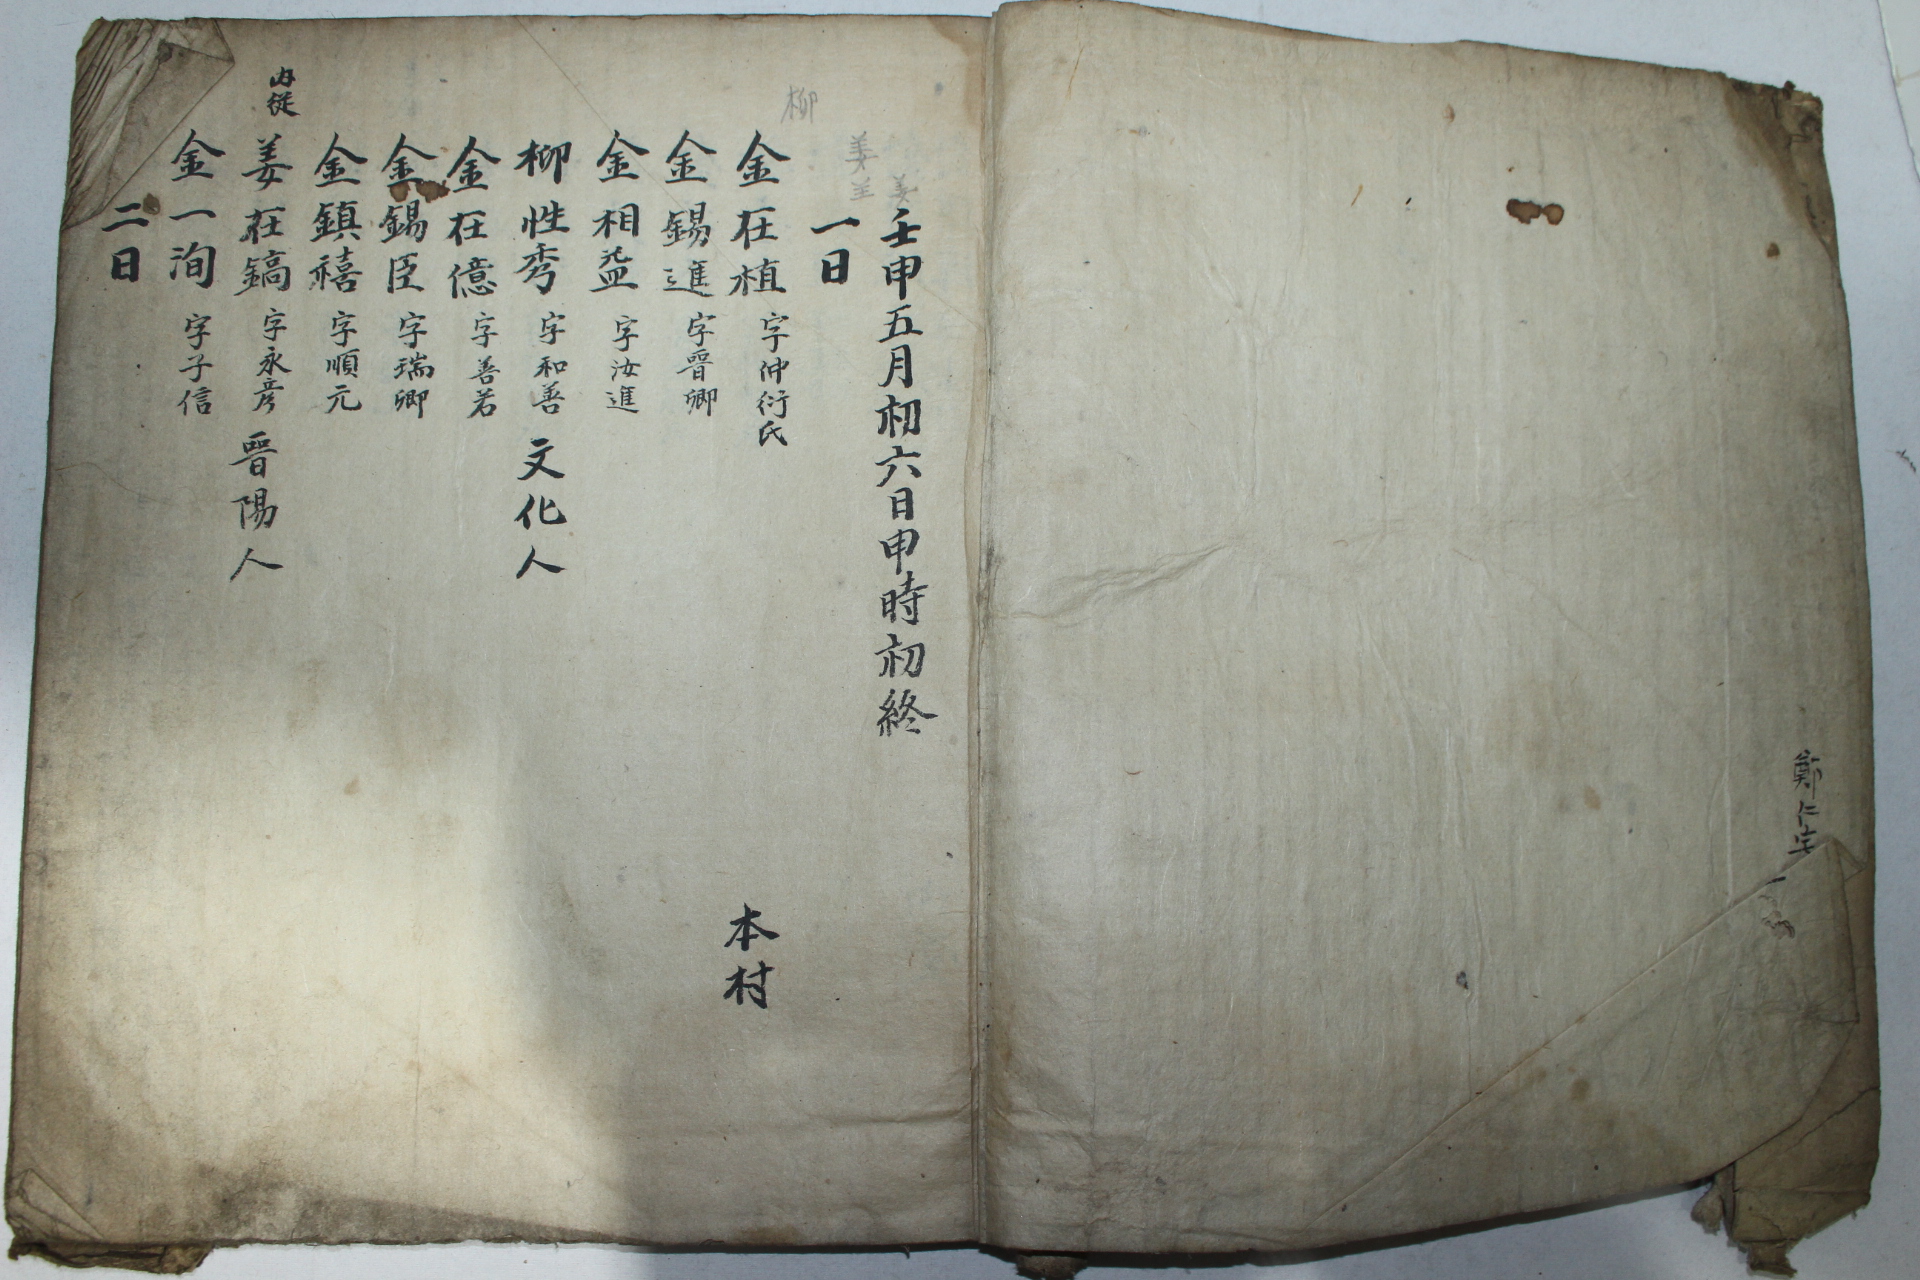 鄭仁宅
壬申五月初六日申時初終
一日
柳
姜
姜
金在植 字仲衍氏 本村
金錫進 字晋卿
金相益 字汝進
柳性秀 字和善 文化人
金在億 字善若
金錫臣 字瑞卿
金鎮禧 字順元
内從 姜在鎬 字永彦 晋陽人
金一洵 字子信
二日